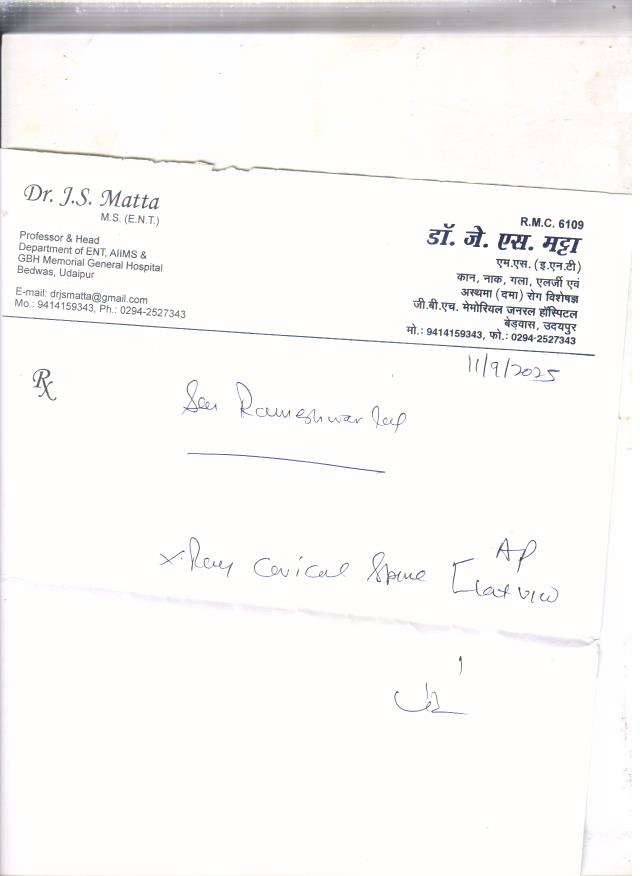 Dr. J.S. Matta
M.S. (E.N.T.)
Professor & Head
Department of ENT, AIIMS &
GBH Memorial General Hospital
Bedwas, Udaipur
E-mail: drjsmatta@gmail.com
Mo.: 9414159343, Ph.: 0294-2527343
R.M.C. 6109
डॉ. जे. एस. मट्टा
एम.एस. (इ.एन.टी)
कान, नाक, गला, एलर्जी एवं
अस्थमा (दमा) रोग विशेषज्ञ
जी.बी.एच. मेमोरियल जनरल हॉस्पिटल
बेड़वास, उदयपुर
मो.: 9414159343, फो.: 0294-2527343
11/9/2025
Rx
Rameshwar
X-Ray Cervical Spine [AP
Lat view